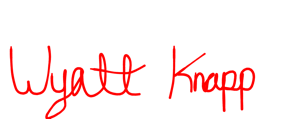 Wyatt Knapp